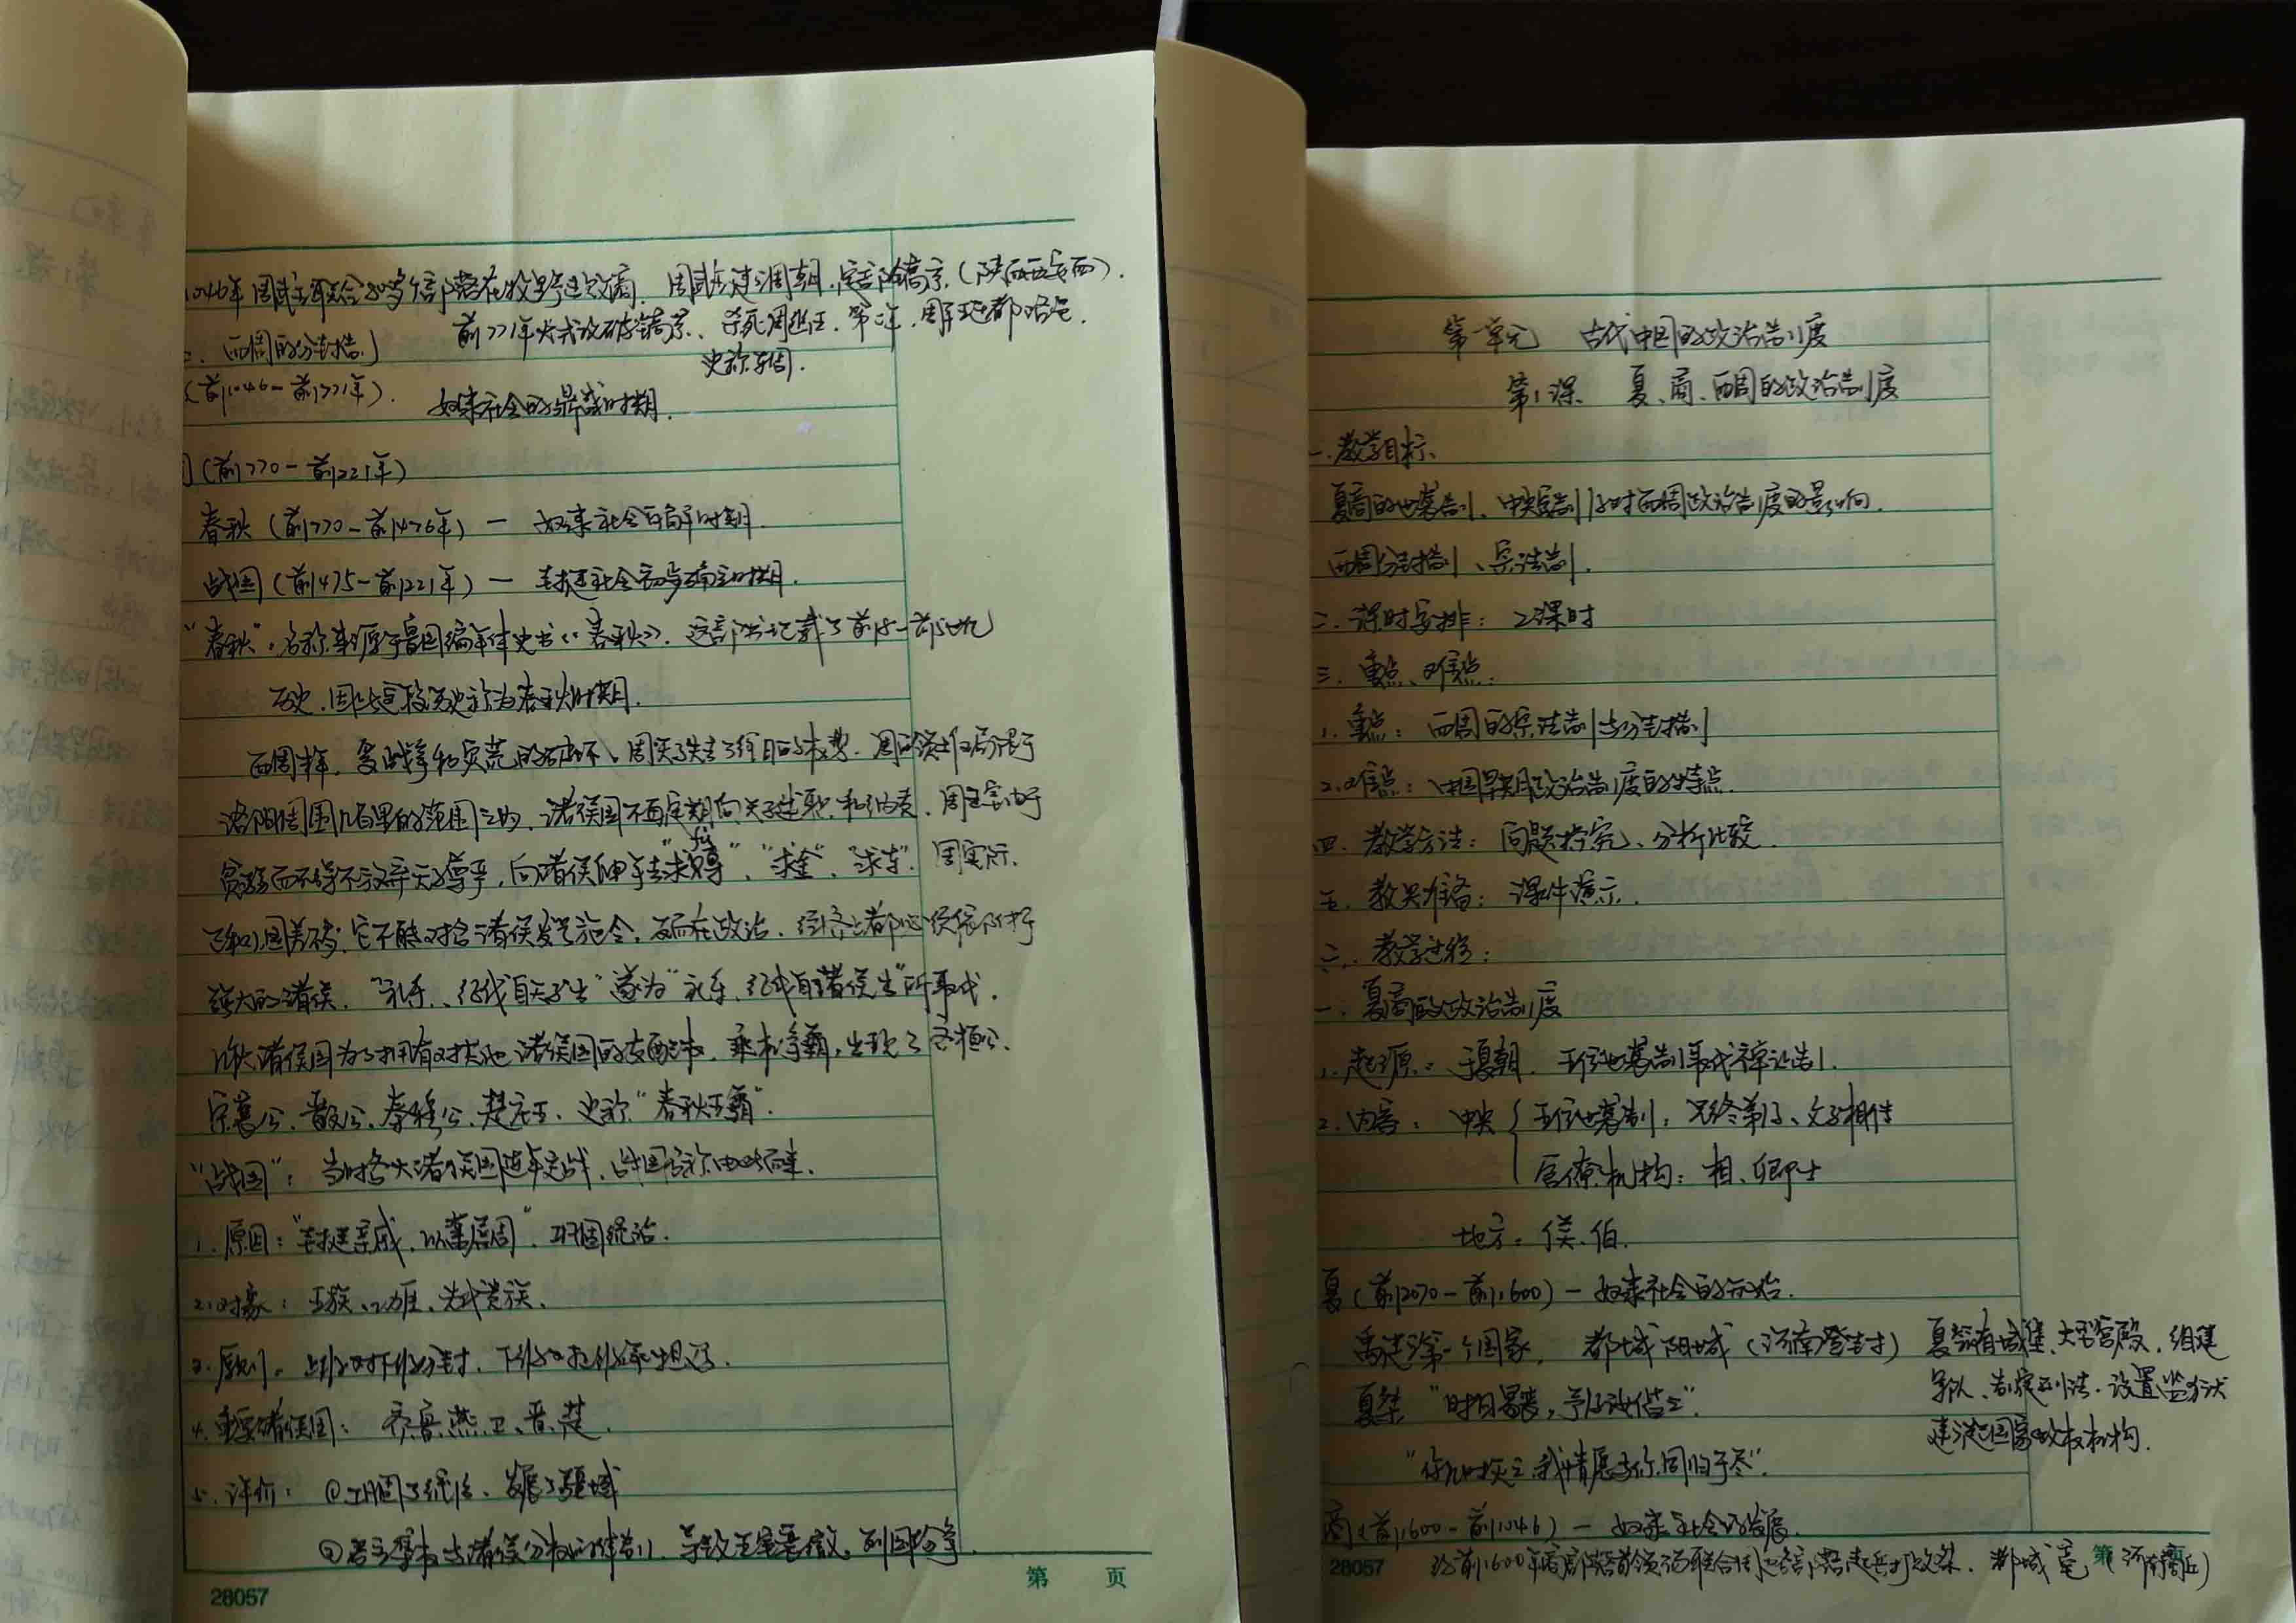 1046年周武王联合80多个部落在牧野过败商. 周武王建立周朝,定都镐京,(陕西西安西).
前771年犬戎攻破镐京、杀死周幽王. 第二年,周平王迁都洛邑.
史称东周.
二. 西周的分封制
(前1046-前771年). 奴隶社会的鼎盛时期.
(前770-前221年)
春秋 (前770-前476年) — 奴隶社会瓦解时期.
战国 (前475-前221年) — 封建社会初步确立时期.
“春秋”: 名称来源于鲁国编年体史书《春秋》. 这部书记载了前8-前5世纪
历史,因此这段历史称为春秋时期.
西周末年, 受战争和灾荒的破坏、周天子失去了往日的权势. 周的领土仅局限于
洛阳周围几百里的范围之内、诸侯国不再定期向天子述职和纳贡. 周王室由于
贫弱而不得不放弃天子尊严,向诸侯伸手去“求赙”、“求金”、“求车”. 周实际
已和小国差不多; 它不能对各诸侯发号施令,反而在政治、经济上都必须依附于
强大的诸侯. “礼乐、征伐自天子出”遂为“礼乐、征伐自诸侯出”所取代.
大诸侯国为了拥有对其他诸侯国的支配权, 乘机争霸,出现了齐桓公、
宋襄公、晋文公、秦穆公、楚庄王、史称“春秋五霸”.
“战国”: 当时各大诸侯国连年交战、战国名称由此而来.
1. 原因: “封建亲戚,以蕃屏周”. 巩固统治.
2. 对象: 王族、功臣、先代贵族.
3. 原则: 上级对下级分封, 下级对上级承担义务.
4. 重要诸侯国: 齐、鲁、燕、卫、晋、楚.
5. 评价: ①巩固了统治、发展了疆域
②君主集权与诸侯分权的体制, 导致王室衰微,列国纷争
28057 第 页
第一单元 古代中国的政治制度
第1课 夏、商、西周的政治制度
一.教学目标
夏商的世袭制、中央官制及对西周政治制度的影响.
西周分封制、宗法制.
二. 课时安排: 2课时
三. 重点、难点:
1. 重点: 西周的宗法制与分封制
2. 难点: 中国早期政治制度的特点.
四. 教学方法: 问题探究、分析比较.
五. 教具准备: 课件演示.
六. 教学过程:
一. 夏商的政治制度
1. 起源: 于夏朝. 王位世袭制取代禅让制.
2. 内容: 中央 { 王位世袭制: 兄终弟及、父子相传
官僚机构: 相、卿士
地方: 侯、伯.
夏 (前2070-前1600) — 奴隶社会的开始.
禹建立第一个国家. 都城阳城 (河南登封)
夏朝有城堡、大型宫殿, 组建
军队、制定刑法、设置监狱
建立起国家政权机构.
夏桀 “时日曷丧,予及汝偕亡”.
“你几时灭亡,我情愿与你同归于尽”.
商 (前1600-前1046) — 奴隶社会的发展.
约前1600年商部落首领汤联合周边各部落起兵打败桀. 都城亳 (河南商丘)
28057 第 页